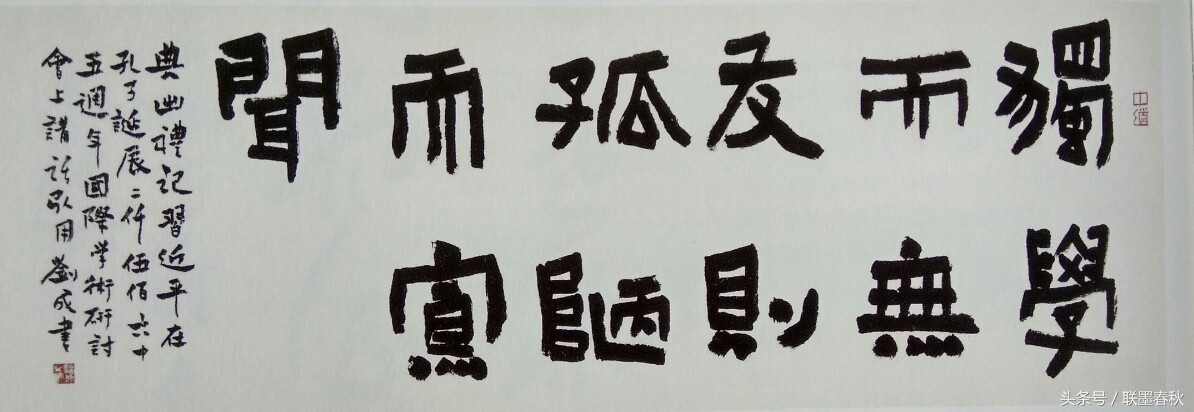 中道
獨學
而無
友則
孤陋
而寡
聞
典出禮記習近平在
孔子誕辰二仟伍佰六十
五週年國際學術研討
會上講話引用劉成書
头条号/联墨春秋